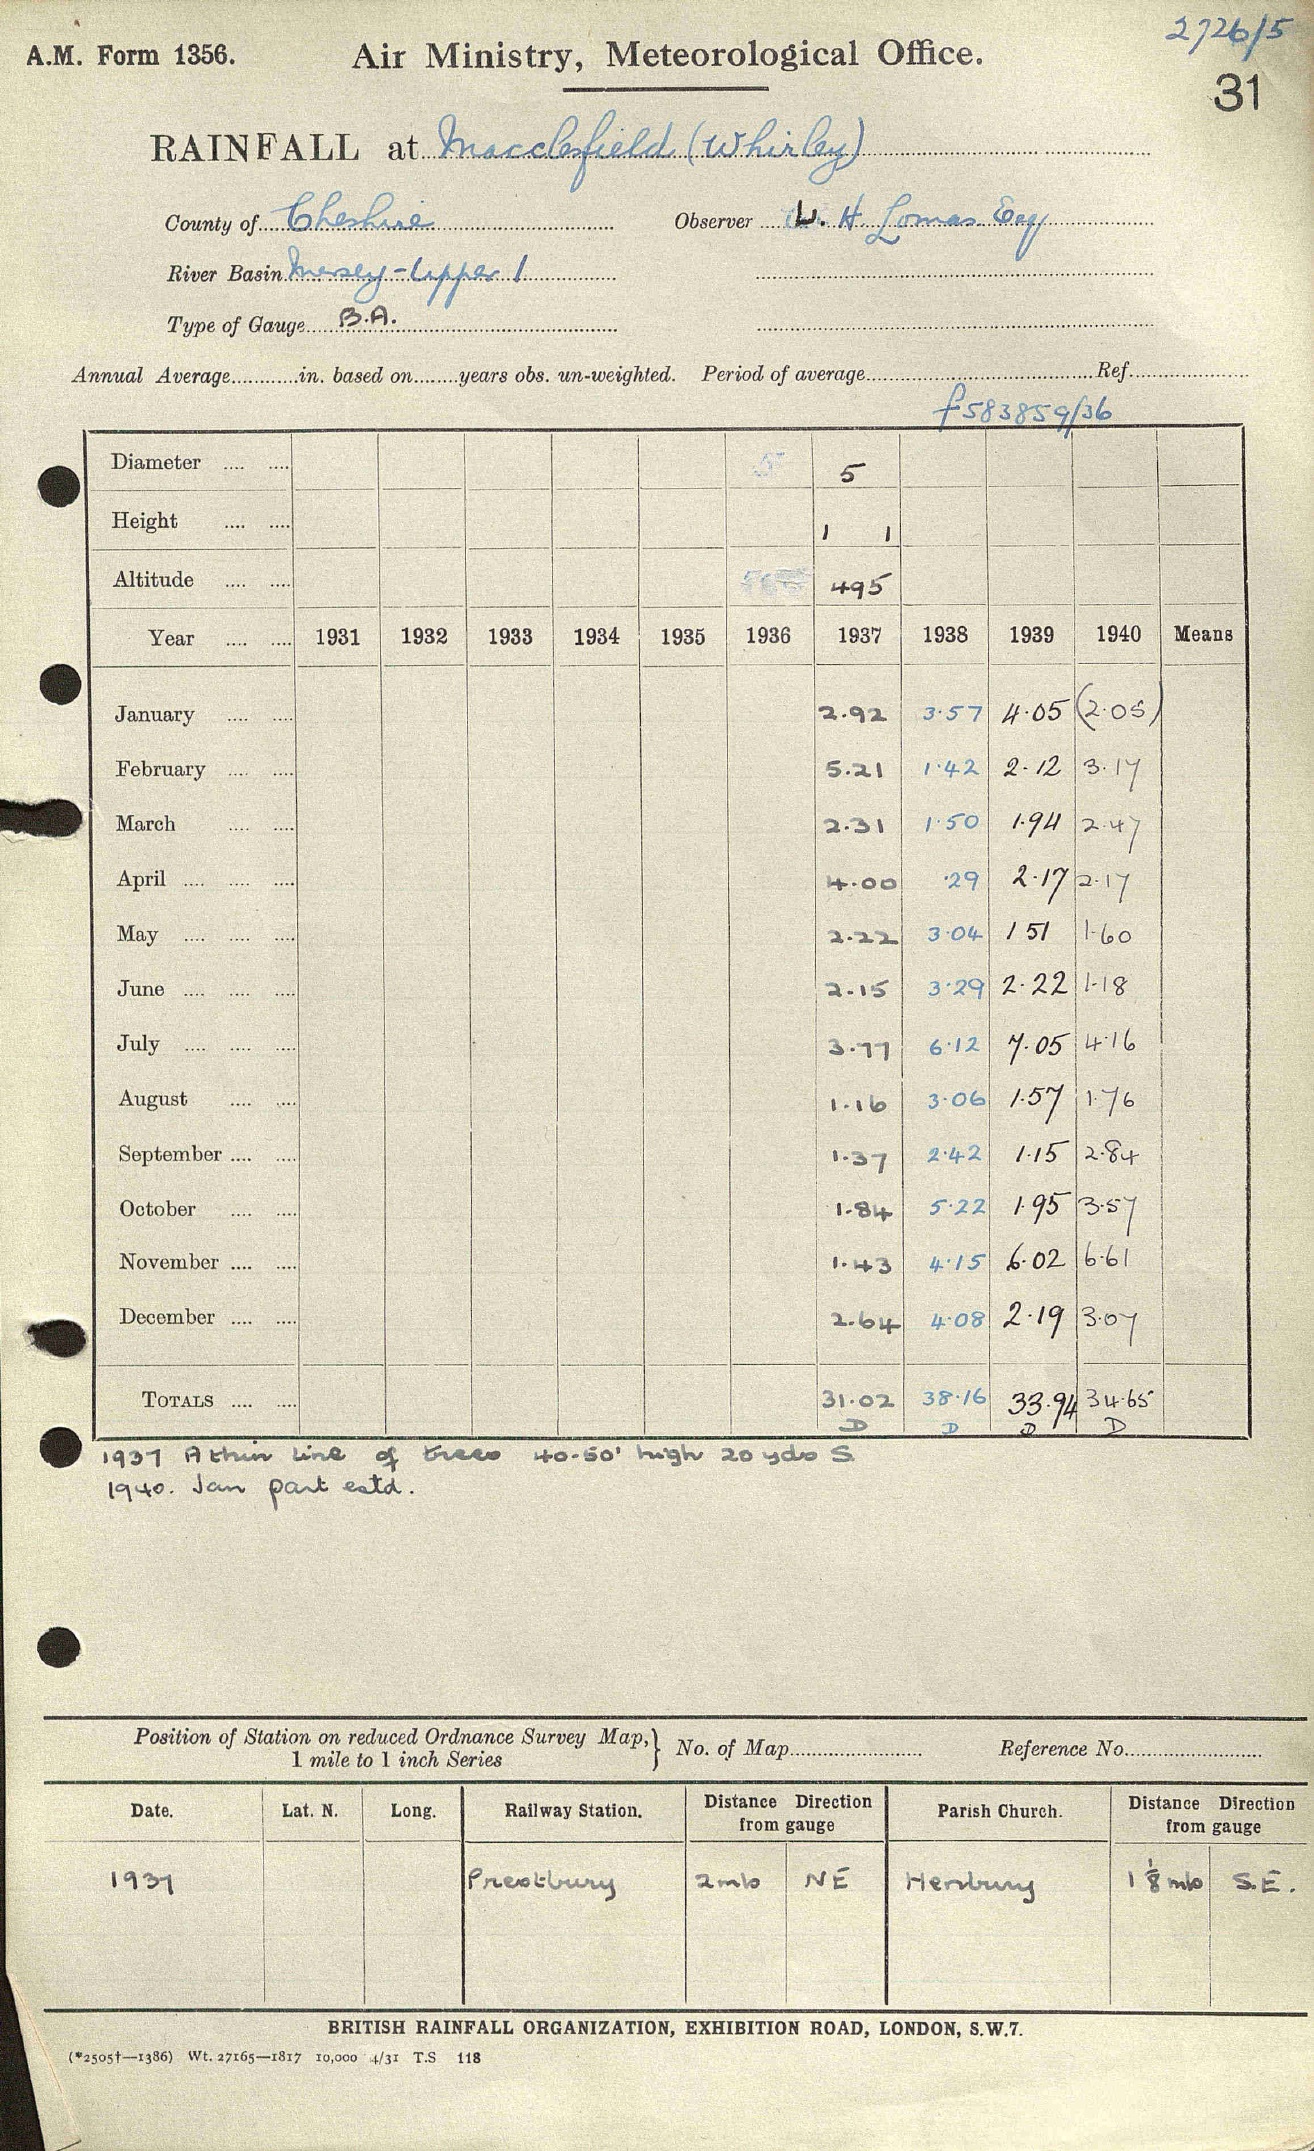 2726/5
A.M. Form 1356. Air Ministry, Meteorological Office.
31
RAINFALL at Macclesfield (Whirley)
County of Cheshire Observer W. H. Lomas Esq
River Basin Mersey - Upper 1
Type of Gauge B.A.
Annual Average............in. based on........years obs. un-weighted. Period of average..........Ref..........
f583859/36
Diameter .... .... 5 5
Height .... .... 1 1
Altitude .... .... 495
Year .... .... 1931 1932 1933 1934 1935 1936 1937 1938 1939 1940 Means
January .... .... 2.92 3.57 4.05 (2.05)
February .... .... 5.21 1.42 2.12 3.17
March .... .... 2.31 1.50 1.94 2.47
April .... .... .... 4.00 .29 2.17 2.17
May .... .... .... 2.22 3.04 1 51 1.60
June .... .... .... 2.15 3.29 2.22 1.18
July .... .... .... 3.77 6.12 7.05 4.16
August .... .... 1.16 3.06 1.57 1.76
September .... .... 1.37 2.42 1.15 2.84
October .... .... 1.84 5.22 1.95 3.57
November .... .... 1.43 4.15 6.02 6.61
December .... .... 2.64 4.08 2.19 3.07
TOTALS .... .... 31.02 38.16 33.94 34.65
D D D D
1937 A thin line of trees 40-50' high 20 yds S
1940. Jan part estd.
Position of Station on reduced Ordnance Survey Map, } No. of Map.......... Reference No..........
1 mile to 1 inch Series
Date. Lat. N. Long. Railway Station. Distance Direction from gauge Parish Church. Distance Direction from gauge
1937 Prestbury 2 mls NE Henbury 1 1/8 mls S.E.
BRITISH RAINFALL ORGANIZATION, EXHIBITION ROAD, LONDON, S.W.7.
(*2505†—1386) Wt. 27165—1817 10,000 4/31 T.S 118